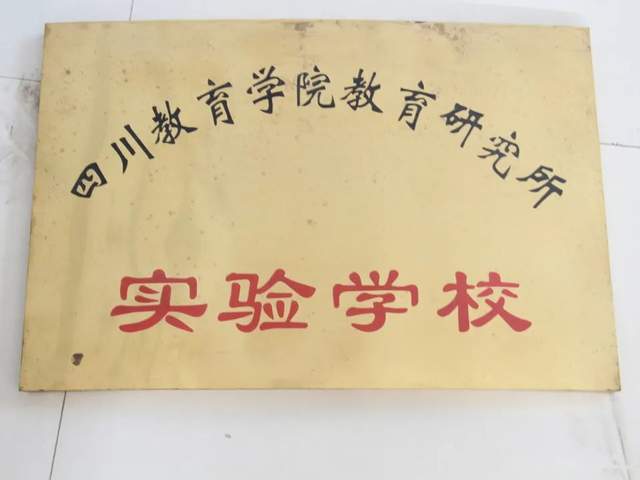 四川教育学院教育研究所
实验学校